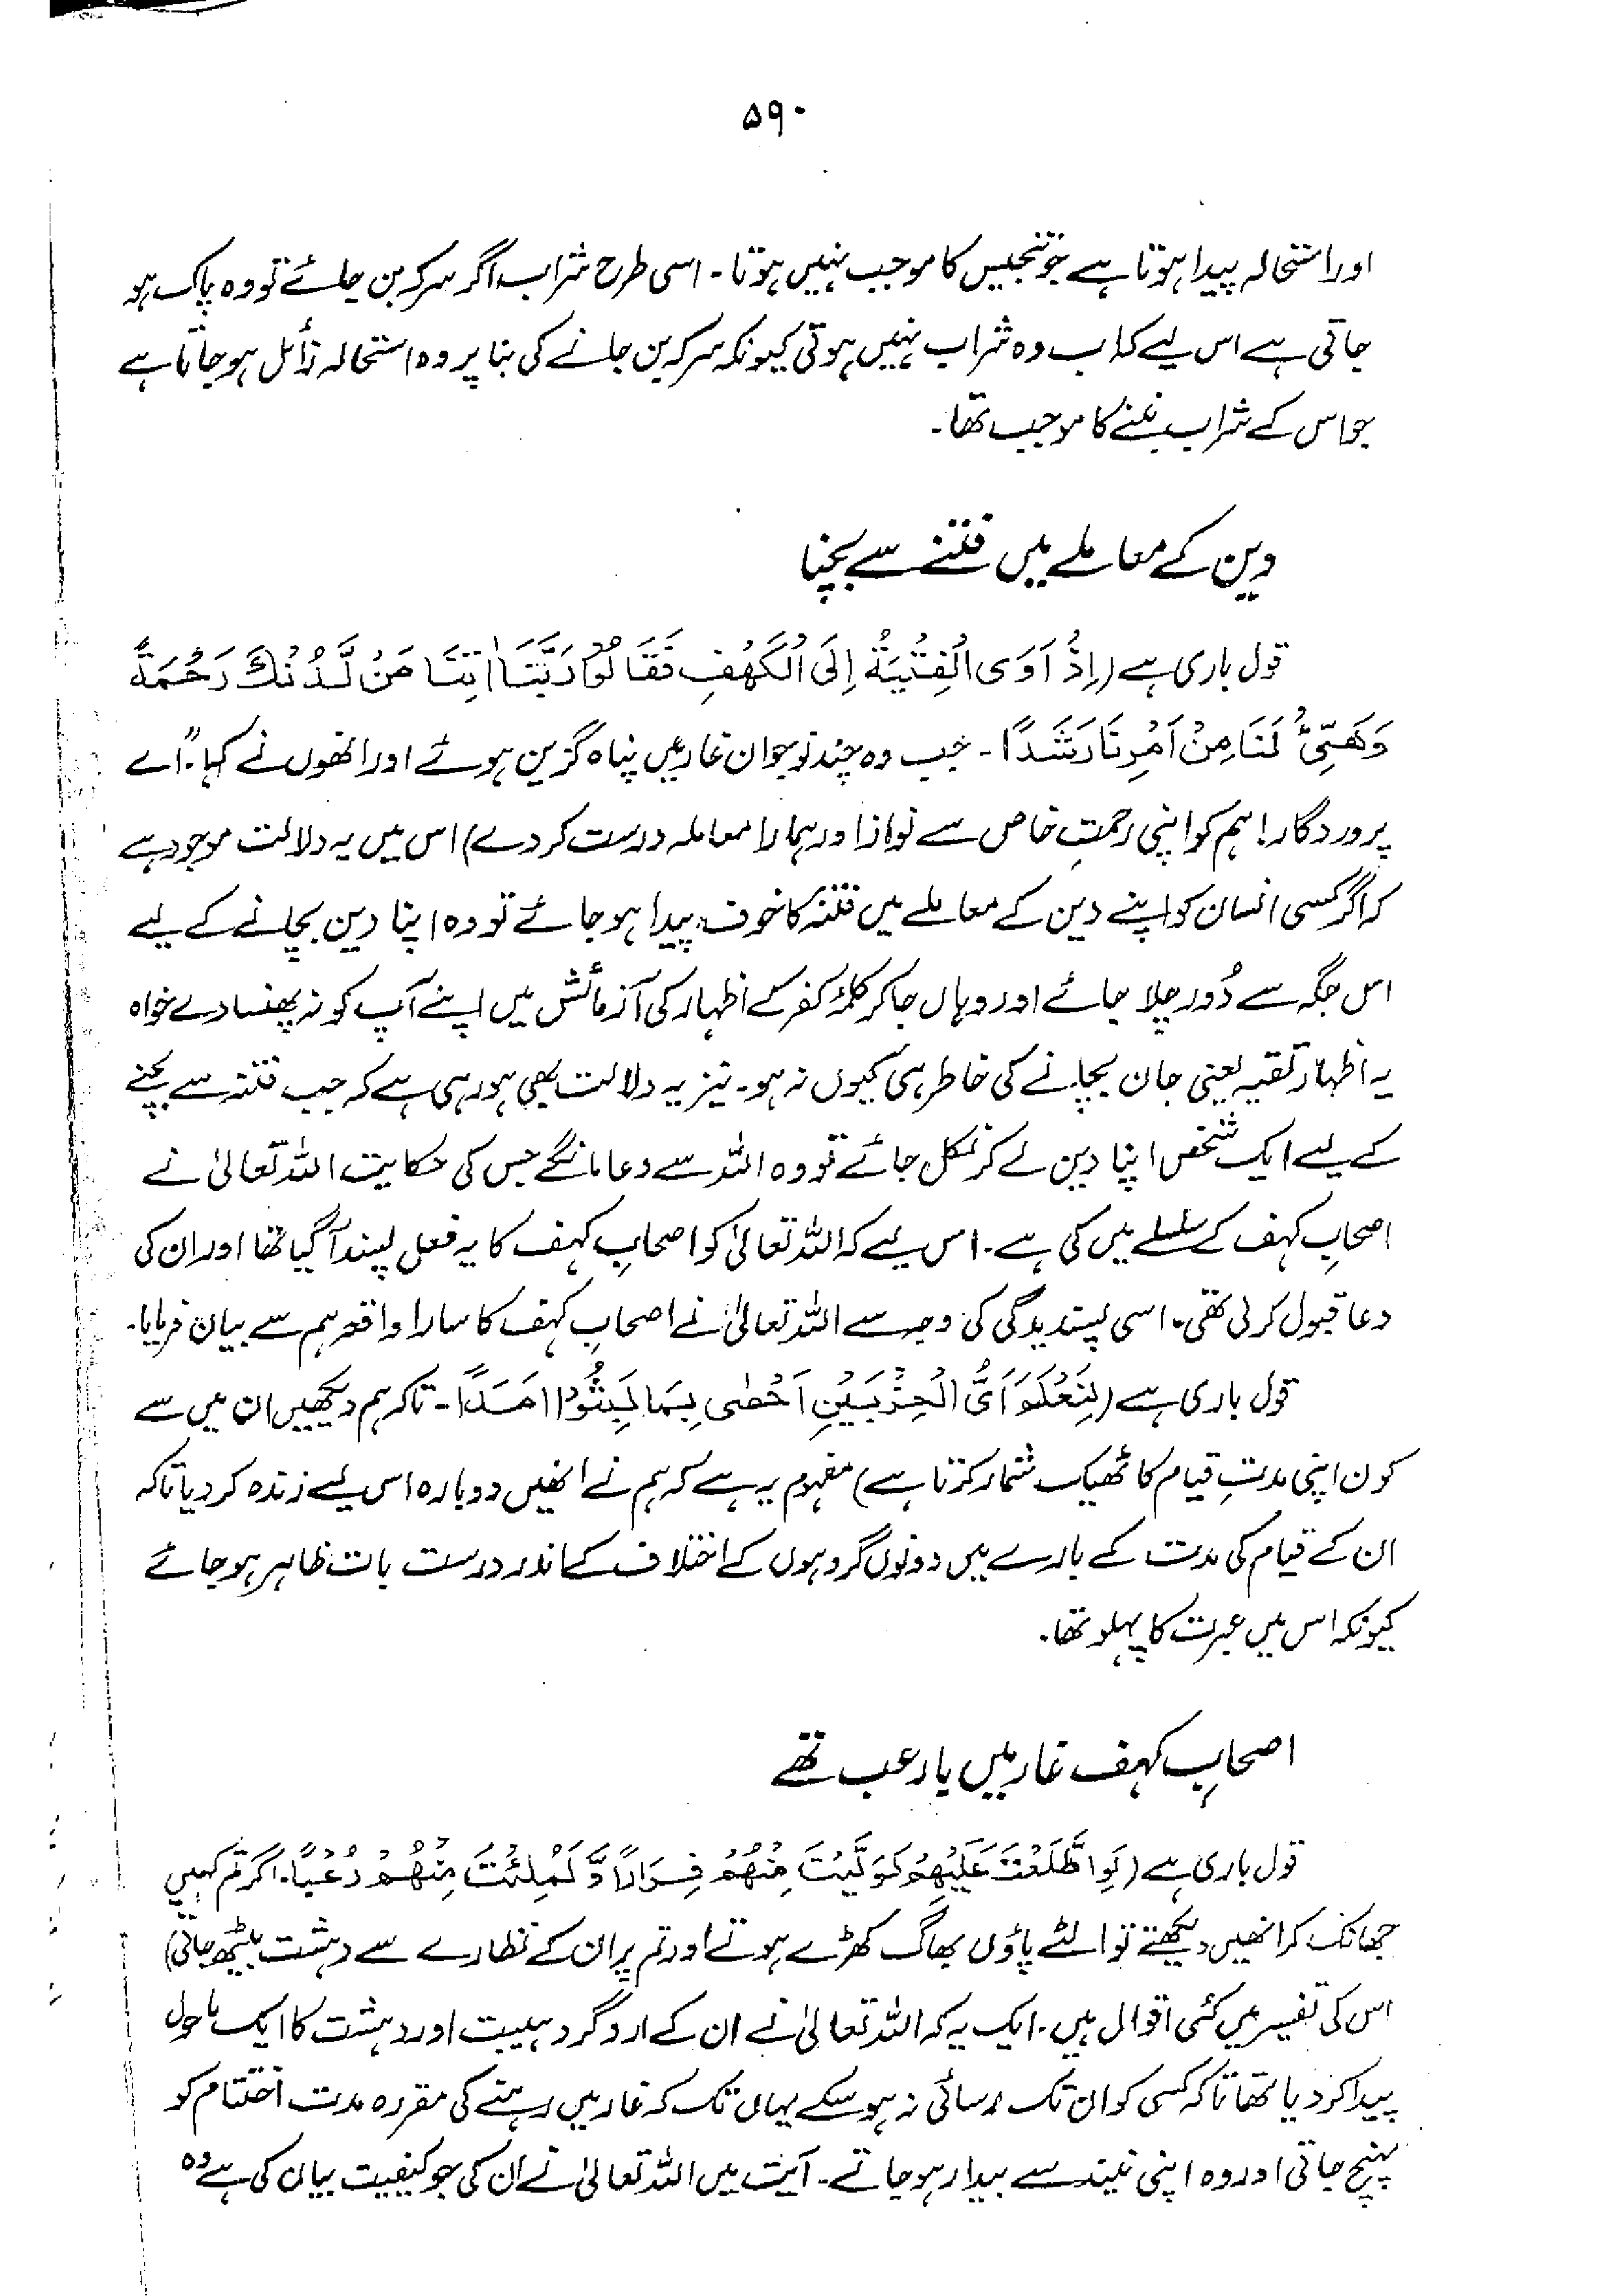 ۵۹۰
اور استحالہ پیدا ہوتا ہے جو تنجیس کا موجب نہیں ہوتا۔ اسی طرح شراب اگر سرکہ بن جائے تو وہ پاک ہو
جاتی ہے اس لیے کہ اب وہ شراب نہیں ہوتی کیونکہ سرکہ بن جانے کی بنا پر وہ استحالہ زائل ہو جاتا ہے
جو اس کے شراب بننے کا موجب تھا۔
دین کے معاملے میں فتنے سے بچنا
قول باری ہے (اِذْ اَوَی الْفِتْیَۃُ اِلَی الْکَھْفِ فَقَالُوْا رَبَّنَا اٰتِنَا مِنْ لَّدُنْکَ رَحْمَۃً
وَھَیِّئْ لَنَا مِنْ اَمْرِنَا رَشَدًا۔ جب وہ چند نوجوان غار میں پناہ گزین ہوئے اور انھوں نے کہا۔" اے
پروردگار! ہم کو اپنی رحمتِ خاص سے نواز اور ہمارا معاملہ درست کر دے) اس میں یہ دلالت موجود ہے
کہ اگر کسی انسان کو اپنے دین کے معاملے میں فتنہ کا خوف پیدا ہو جائے تو وہ اپنا دین بچانے کے لیے
اس جگہ سے دُور چلا جائے اور وہاں جا کر کلمۂ کفر کے اظہار کی آزمائش میں اپنے آپ کو نہ پھنسا دے خواہ
یہ اظہار تقیہ یعنی جان بچانے کی خاطر ہی کیوں نہ ہو۔ نیز یہ دلالت بھی ہو رہی ہے کہ جب فتنہ سے بچنے
کے لیے ایک شخص اپنا دین لے کر نکل جائے تو وہ اللہ سے دعا مانگے جس کی حکایت اللہ تعالیٰ نے
اصحابِ کہف کے سلسلے میں کی ہے۔ اس لیے کہ اللہ تعالیٰ کو اصحابِ کہف کا یہ فعل پسند آ گیا تھا اور ان کی
دعا قبول کر لی تھی۔ اسی پسندیدگی کی وجہ سے اللہ تعالیٰ نے اصحابِ کہف کا سارا واقعہ ہم سے بیان فرمایا۔
قول باری ہے (لِنَعْلَمَ اَیُّ الْحِزْبَیْنِ اَحْصٰی لِمَا لَبِثُوْا اَمَدًا۔ تاکہ ہم دیکھیں ان میں سے
کون اپنی مدتِ قیام کا ٹھیک شمار کرتا ہے) مفہوم یہ ہے کہ ہم نے انھیں دوبارہ اس لیے زندہ کر دیا تاکہ
ان کے قیام کی مدت کے بارے میں دونوں گروہوں کے اختلاف کے اندر درست بات ظاہر ہو جائے
کیونکہ اس میں عبرت کا پہلو تھا۔
اصحابِ کہف غار میں بارعب تھے
قول باری ہے (لَوِ اطَّلَعْتَ عَلَیْھِمْ لَوَلَّیْتَ مِنْھُمْ فِرَارًا وَّلَمُلِئْتَ مِنْھُمْ رُعْبًا۔ اگر تم کہیں
جھانک کر انھیں دیکھتے تو الٹے پاؤں بھاگ کھڑے ہوتے اور تم پر ان کے نظارے سے دہشت بیٹھ جاتی)
اس کی تفسیر میں کئی اقوال ہیں۔ ایک یہ کہ اللہ تعالیٰ نے ان کے ارد گرد ہیبت اور دہشت کا ایک ماحول
پیدا کر دیا تھا تاکہ کسی کو ان تک رسائی نہ ہو سکے یہاں تک کہ غار میں رہنے کی مقررہ مدت اختتام کو
پہنچ جاتی اور وہ اپنی نیند سے بیدار ہو جاتے۔ آیت میں اللہ تعالیٰ نے ان کی جو کیفیت بیان کی ہے وہ